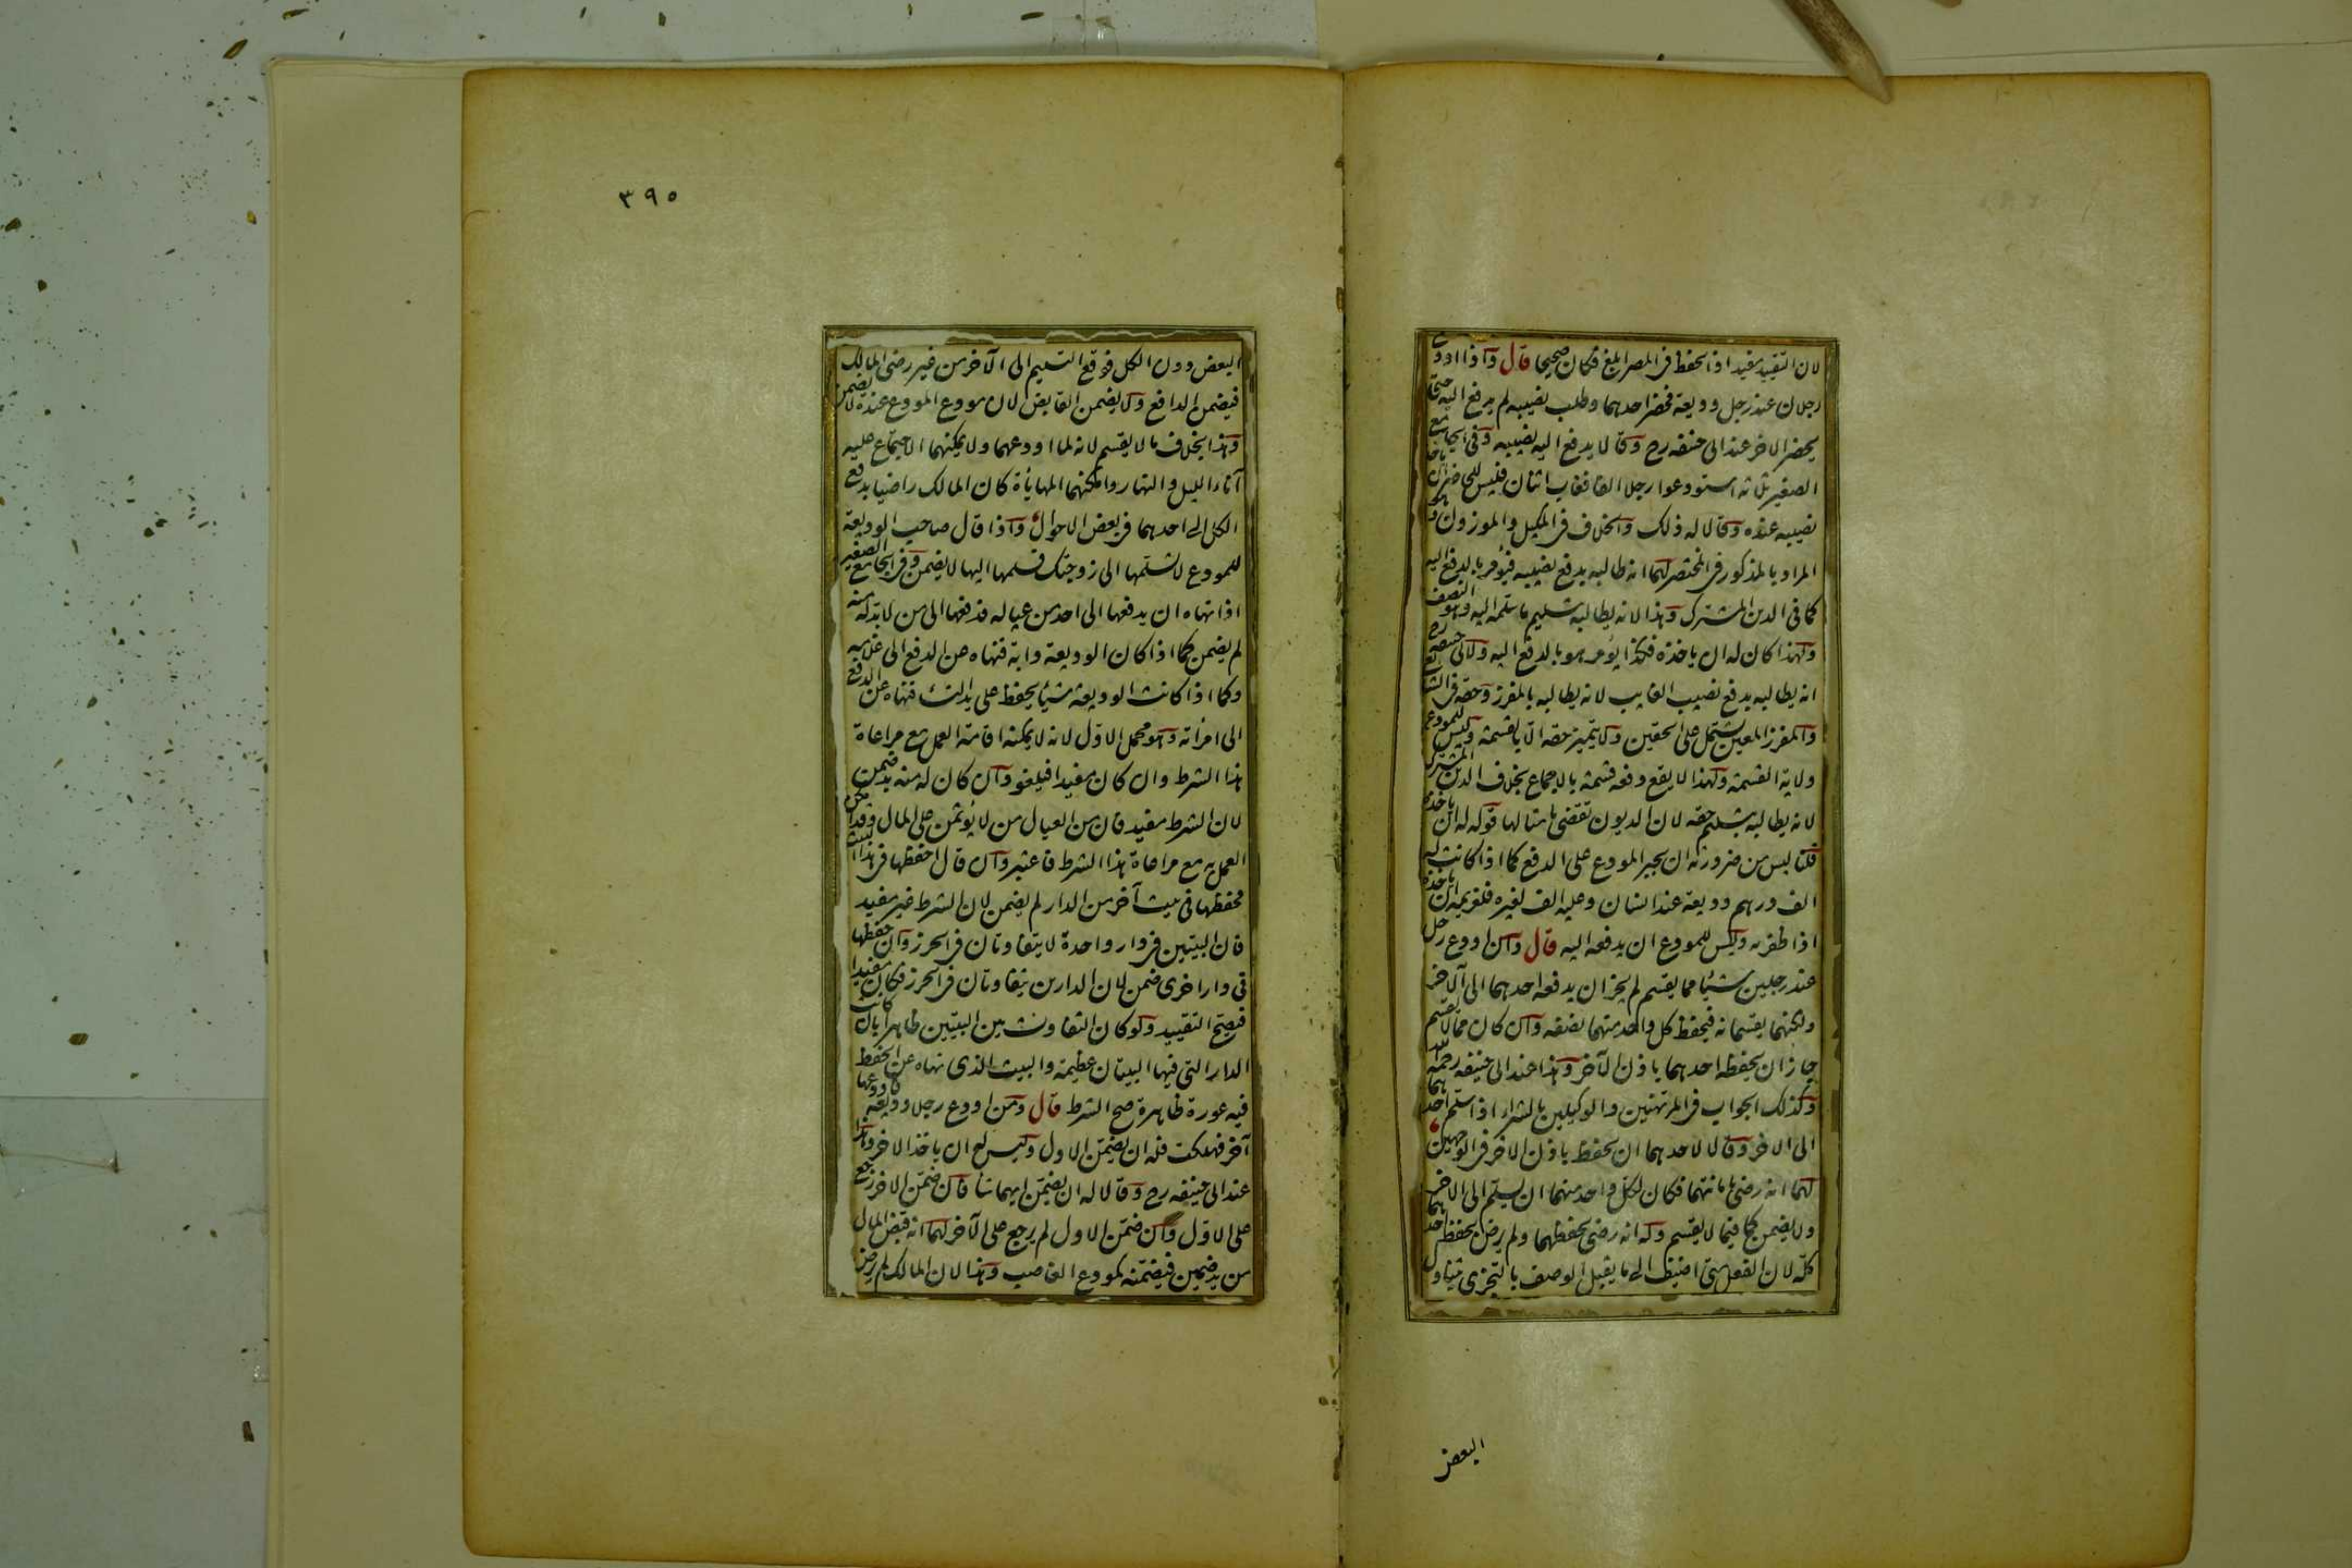 لان التقييد مفيد اذ الحفظ فى المصر ابلغ فكان صحيحا قال واذا اودع
رجلان عند رجل وديعة فحضر احدهما وطلب نصيبه لم يدفع اليه حتى
يحضر الاخر عند ابى حنيفه رح وقالا يدفع اليه نصيبه وفى الجامع
الصغير ثلاثه استودعوا رجلا الفا فغاب اثنان فليس للحاضر ان ياخذ
نصيبه عنده وقالا له ذلك والخلاف فى المكيل والموزون وهو
المراد بالمذكور فى المختصر لهما انه طالبه بدفع نصيبه فيؤمر بالدفع اليه
كما فى الدين المشترك وهذا لانه يطالبه بتسليم ما سلمه اليه وهو النصف
ولهذا كان له ان ياخذه فكذا يؤمر هو بالدفع اليه ولابى حنيفه رح
انه يطالبه بدفع نصيب الغايب لانه يطالبه بالمفرز وحقه فى الشايع
والمفرز المعين يشتمل على الحقين ولا يتميز حقه الا بالقسمة وليس للمودع
ولاية القسمة ولهذا لا يقع دفعه قسمة بالاجماع بخلاف الدين المشترك
لانه يطالبه بتسليم حقه لان الديون تقضى بامثالها قوله له ان ياخذه
قلنا ليس من ضرورته ان يجبر المودع على الدفع كما اذا كانت له
الف درهم وديعة عند انسان وعليه الف لغيره فلغريمه ان ياخذه
اذا ظفر به وليس للمودع ان يدفعه اليه قال وان اودع رجل
عند رجلين شيئا مما يقسم لم يجز ان يدفعه احدهما الى الآخر
ولكنهما يقتسمانه فيحفظ كل واحد منهما نصفه وان كان مما لا يقسم
جاز ان يحفظه احدهما باذن الآخر وهذا عند ابى حنيفه رحمه الله
وكذلك الجواب فى المرتهنين والوكيلين بالشراء اذا سلم احدهما
الى الاخر وقالا لاحدهما ان يحفظ باذن الاخر فى الوجهين
لهما انه رضى بامانتهما فكان لكل واحد منهما ان يسلم الى الاخر
ولا يضمن كما فيما لا يقسم وله انه رضى بحفظهما ولم يرض بحفظ احدهما
كله لان الفعل متى اضيف الى ما يقبل الوصف بالتجزى تناول
البعض
٣٩٥
البعض دون الكل فوقع التسليم الى الآخر من غير رضى المالك
فيضمن الدافع ولا يضمن القابض لان مودع المودع عنده لا يضمن
وهذا بخلاف ما لا يقسم لانه لما اودعهما ولا يمكنهما الاجتماع عليه
آناء الليل والنهار وامكنهما المهايأة كان المالك راضيا بدفع
الكل الى احدهما فى بعض الاحوال واذا قال صاحب الوديعة
للمودع لا تسلمها الى زوجتك فسلمها اليها لا يضمن وفى الجامع الصغير
اذا نهاه ان يدفعها الى احد من عياله فدفعها الى من لا بد له منه
لم يضمن كما اذا كان الوديعة دابة فنهاه عن الدفع الى غلامه
وكما اذا كانت الوديعة شيئا يحفظ على يد النساء فنهاه عن الدفع
الى امرأته وهو محمل الاول لانه لا يمكنه اقامة العمل مع مراعاة
هذا الشرط وان كان مفيدا فيلغو وان كان له منه بد ضمن
لان الشرط مفيد فان من العيال من لا يؤتمن على المال وقد امكن
العمل به مع مراعاة هذا الشرط فاعتبر وان قال احفظها فى هذا البيت
فحفظها فى بيت آخر من الدار لم يضمن لان الشرط غير مفيد
فان البيتين فى دار واحدة لا يتفاوتان فى الحرز وان حفظها
فى دار اخرى ضمن لان الدارين يتفاوتان فى الحرز فكان مفيدا
فيصح التقييد ولو كان التفاوت بين البيتين ظاهرا بان كانت
الدار التى فيها البيتان عظيمة والبيت الذى نهاه عن الحفظ
فيه عورة ظاهرة صح الشرط قال ومن اودع رجلا وديعة فاودعها
آخر فهلكت فله ان يضمن الاول وليس له ان ياخذ الاخر وهذا
عند ابى حنيفه رح وقالا له ان يضمن ايهما شا فان ضمن الاخر رجع
على الاول وان ضمن الاول لم يرجع على الآخر لهما انه قبض المال
من يد ضمين فيضمنه كمودع الغاصب وهذا لان المالك لم يرض